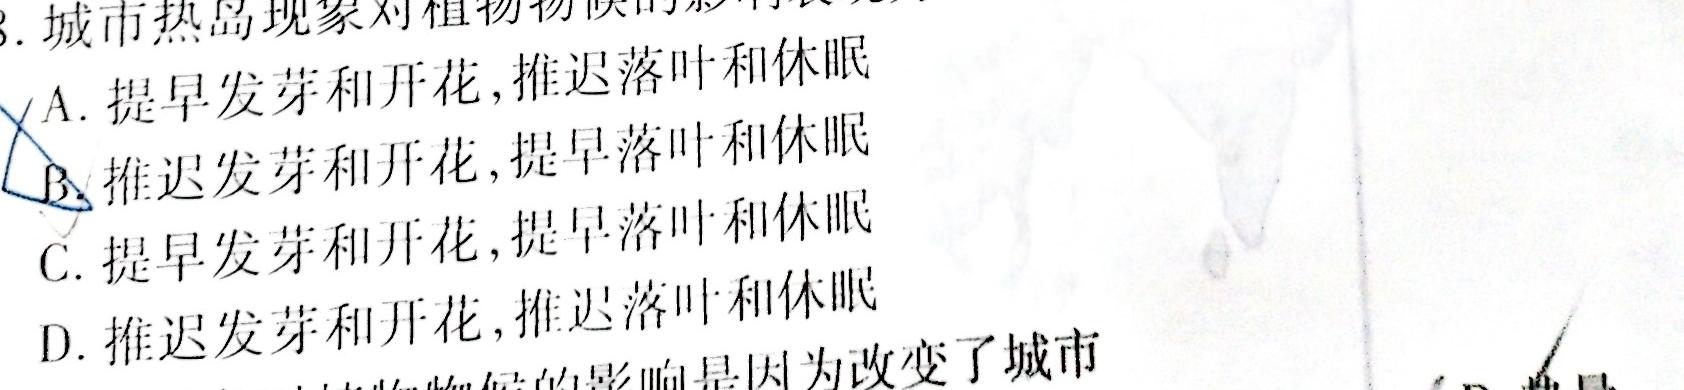 3. 城市热岛现象对植物物候的影响表现为
A. 提早发芽和开花,推迟落叶和休眠
B. 推迟发芽和开花,提早落叶和休眠
C. 提早发芽和开花,提早落叶和休眠
D. 推迟发芽和开花,推迟落叶和休眠
植物物候的影响是因为改变了城市